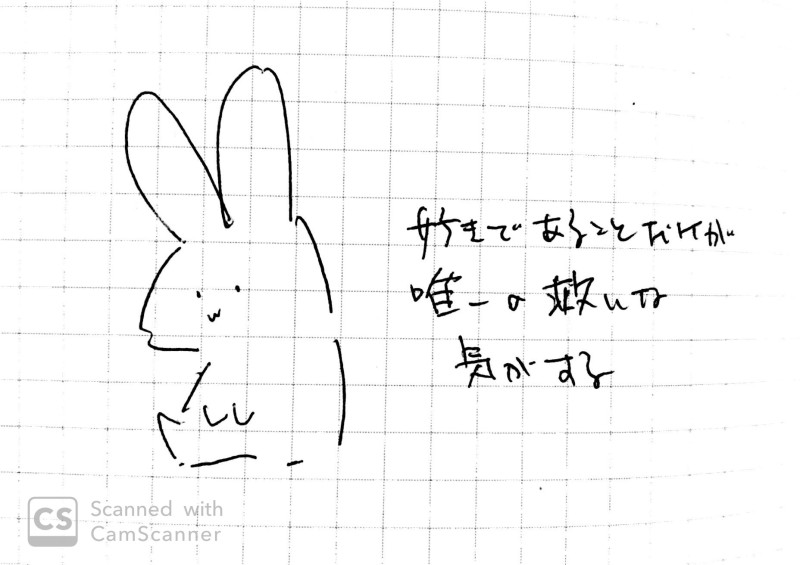 好きであることだけが
唯一の救いな
気がする
CS Scanned with
CamScanner